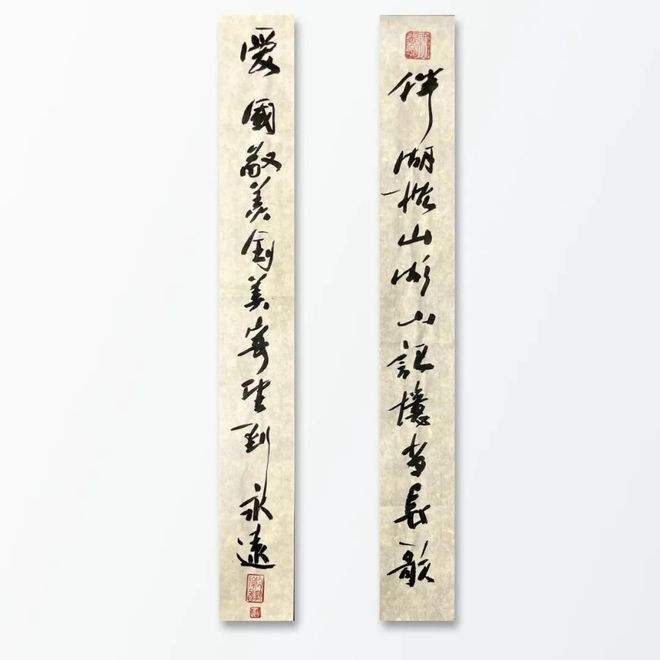 伴湖山湖山記憶當長歌
愛國敬美創美寄望到永遠